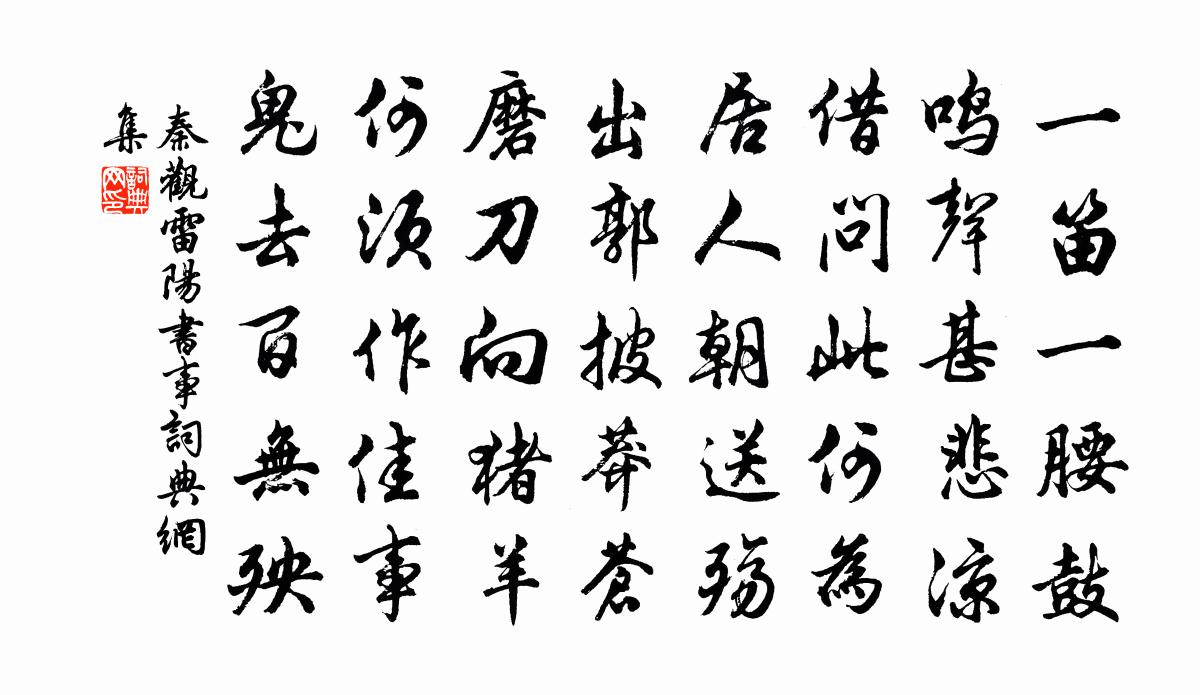 一笛一腰鼓
鸣聲甚悲涼
借問此何為
居人朝送殇
出郭披莽蒼
磨刀向猪羊
何須作佳事
鬼去百無殃
秦觀雷陽書事詞典網
集
詞典
网印